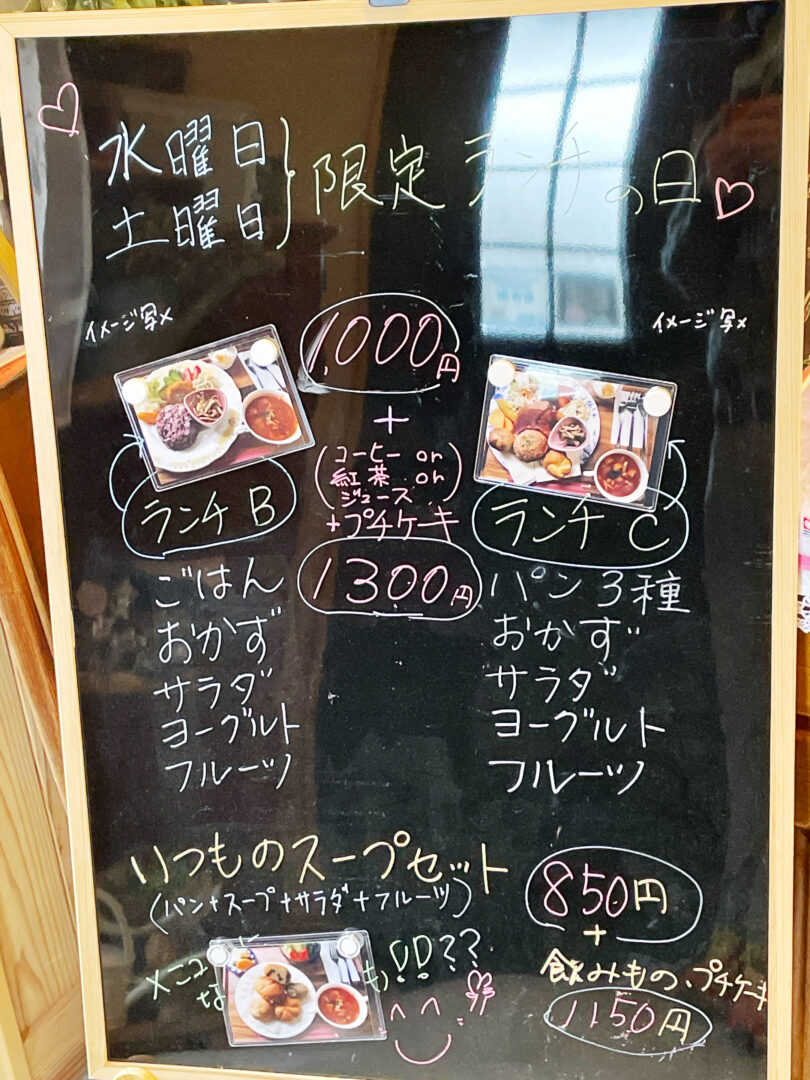 水曜日
土曜日
限定ランチの日
イメージ写
イメージ写
1,000円
+
(コーヒー or
紅茶 or
ジュース)
+プチケーキ
1300円
ランチ B
ごはん
おかず
サラダ
ヨーグルト
フルーツ
ランチ C
パン3種
おかず
サラダ
ヨーグルト
フルーツ
いつものスープセット
(パン+スープ+サラダ+フルーツ)
850円
+
飲みもの、プチケーキ
1150円
メニュー
な も!!??